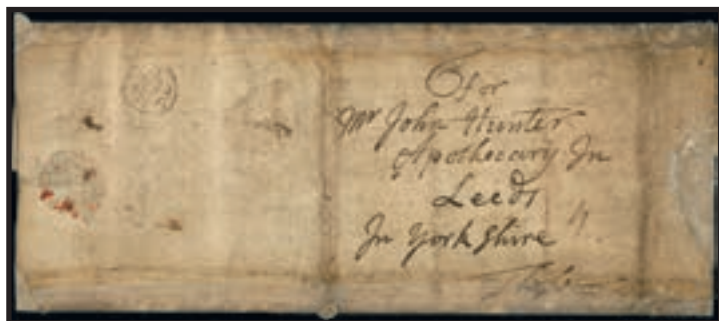 for
Mr John Hunter
Apothecary In
Leeds
In Yorkshire